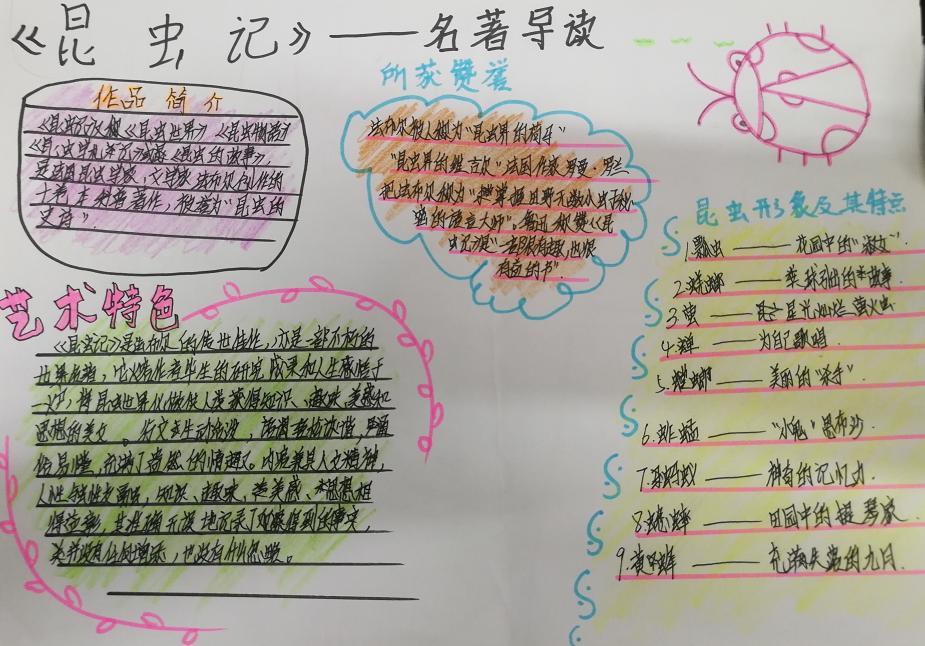 《昆虫记》——名著导读
作品简介
《昆虫记》又称《昆虫世界》《昆虫物语》
《昆虫学札记》或《昆虫的故事》,
是法国昆虫学家、文学家法布尔创作的
十卷
著作,被誉为"昆虫的
史诗"
所获赞誉
法布尔被人称为"昆虫界的荷马"
"昆虫界的维吉尔"法国作家罗曼·罗兰
把法布尔称为
的语言大师"。鲁迅称赞《昆
虫记》是一部很有趣,也很
有益的书".
艺术特色
《昆虫记》是法布尔的传世佳作,亦是一部不朽的
世界名著,它将作者毕生的研究成果和人生感悟于
一炉,将昆虫世界化做供人类获得知识、趣味、美感和
思想的美文。行文生动活泼,语调轻松诙谐,
俗易懂,充满了盎然的情趣。内容兼具人文精神,
人性与虫性交融,知识、趣味、美感、思想相
得益彰,其准确无误地记录了观察得到的事实,
既没有任何增添,也没有什么忽略。
昆虫形象及其特点
1.瓢虫——花园中的"淑女".
2.蜣螂——粪球引出的故事
3.萤——星光灿烂萤火虫
4.蝉——为自己歌唱
5.螳螂——美丽的"杀手"
6.蝗——"小鬼"
7.蚂蚁——神奇的记忆力.
8.蟋蟀——田园中的提琴家
9.黄蜂——充满失望的九月.